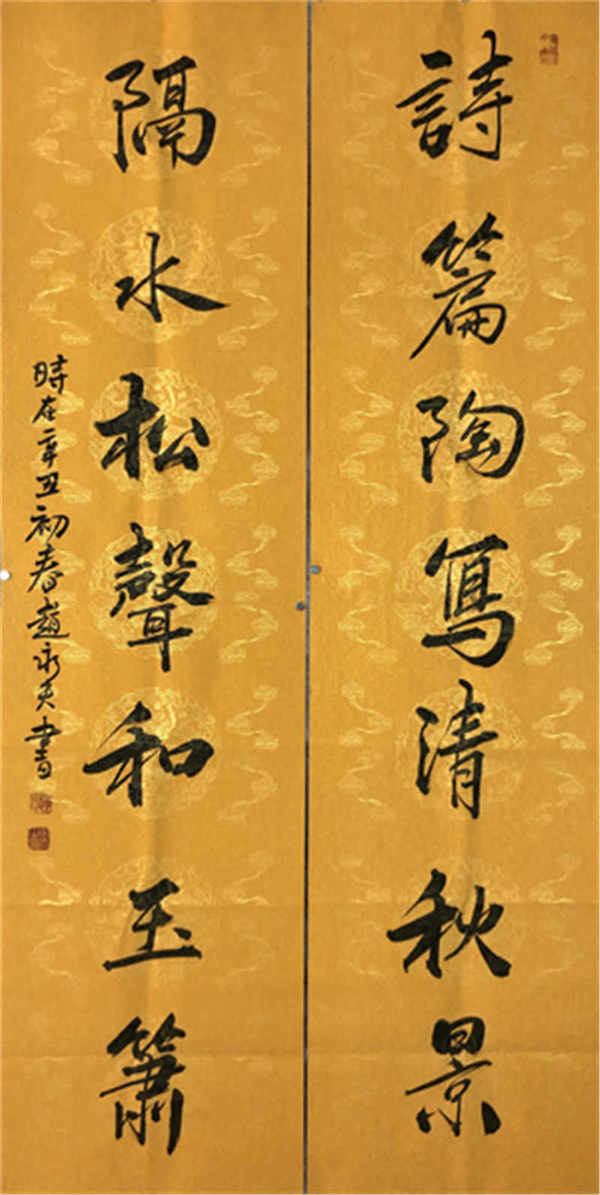 詩篇陶寫清秋景
隔水松聲和玉簫
時在辛丑初春趙永夫書